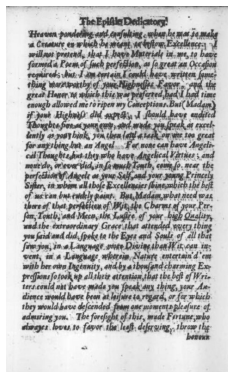 The Epistle Dedicatory.
Heaven pondering and consulting, when he was to make
a Creature on which he meant to bestow Excellence; I
will not pretend, that I have Materials in me, to have
formed a Poem of such perfection, as so great an Occasion
required: but I am certain I could have written some-
thing more worthy of your Highnesses Favour, and the
great Honor to which this was preferred, had I had time
enough allowed me to ripen my Conceptions. But Madam,
if your Highness did expect I should have endited
Thoughts for as your own, and made you speak as excel-
lently as you look, you then set a task on me too great
for any thing but an Angel. For none can have Angeli-
cal Thoughts, but they who have Angelical Virtues; and
none do, or ever did, in so much Youth, come so near the
perfection of Angels as your Self, and your young Princely
Sister, in whom all those Excellencies shine, which the best
of us can but rudely paint. But, Madam, what need was
there of that perfection of Wit, the Charms of your Per-
son, Youth, and Meen, the Lustre of your high Quality,
and the extraordinary Grace that attended every thing
you said and did, spoke to the Eyes and Souls of all that
saw you, in a Language more Divine than Wit can in-
vent, in a Language wherein Nature entertain'd 'em
with her own Ingenuity, and by a thousand charming Ex-
pressions so took up all their attention, that the best of Wri-
ters could not have made you speak any thing, your Au-
dience would have been at leisure to regard, or for which
they would have descended from one moments pleasure of
admiring you. The foresight of this, made Fortune, who
always loves to favor the least deserving, throw the
honour